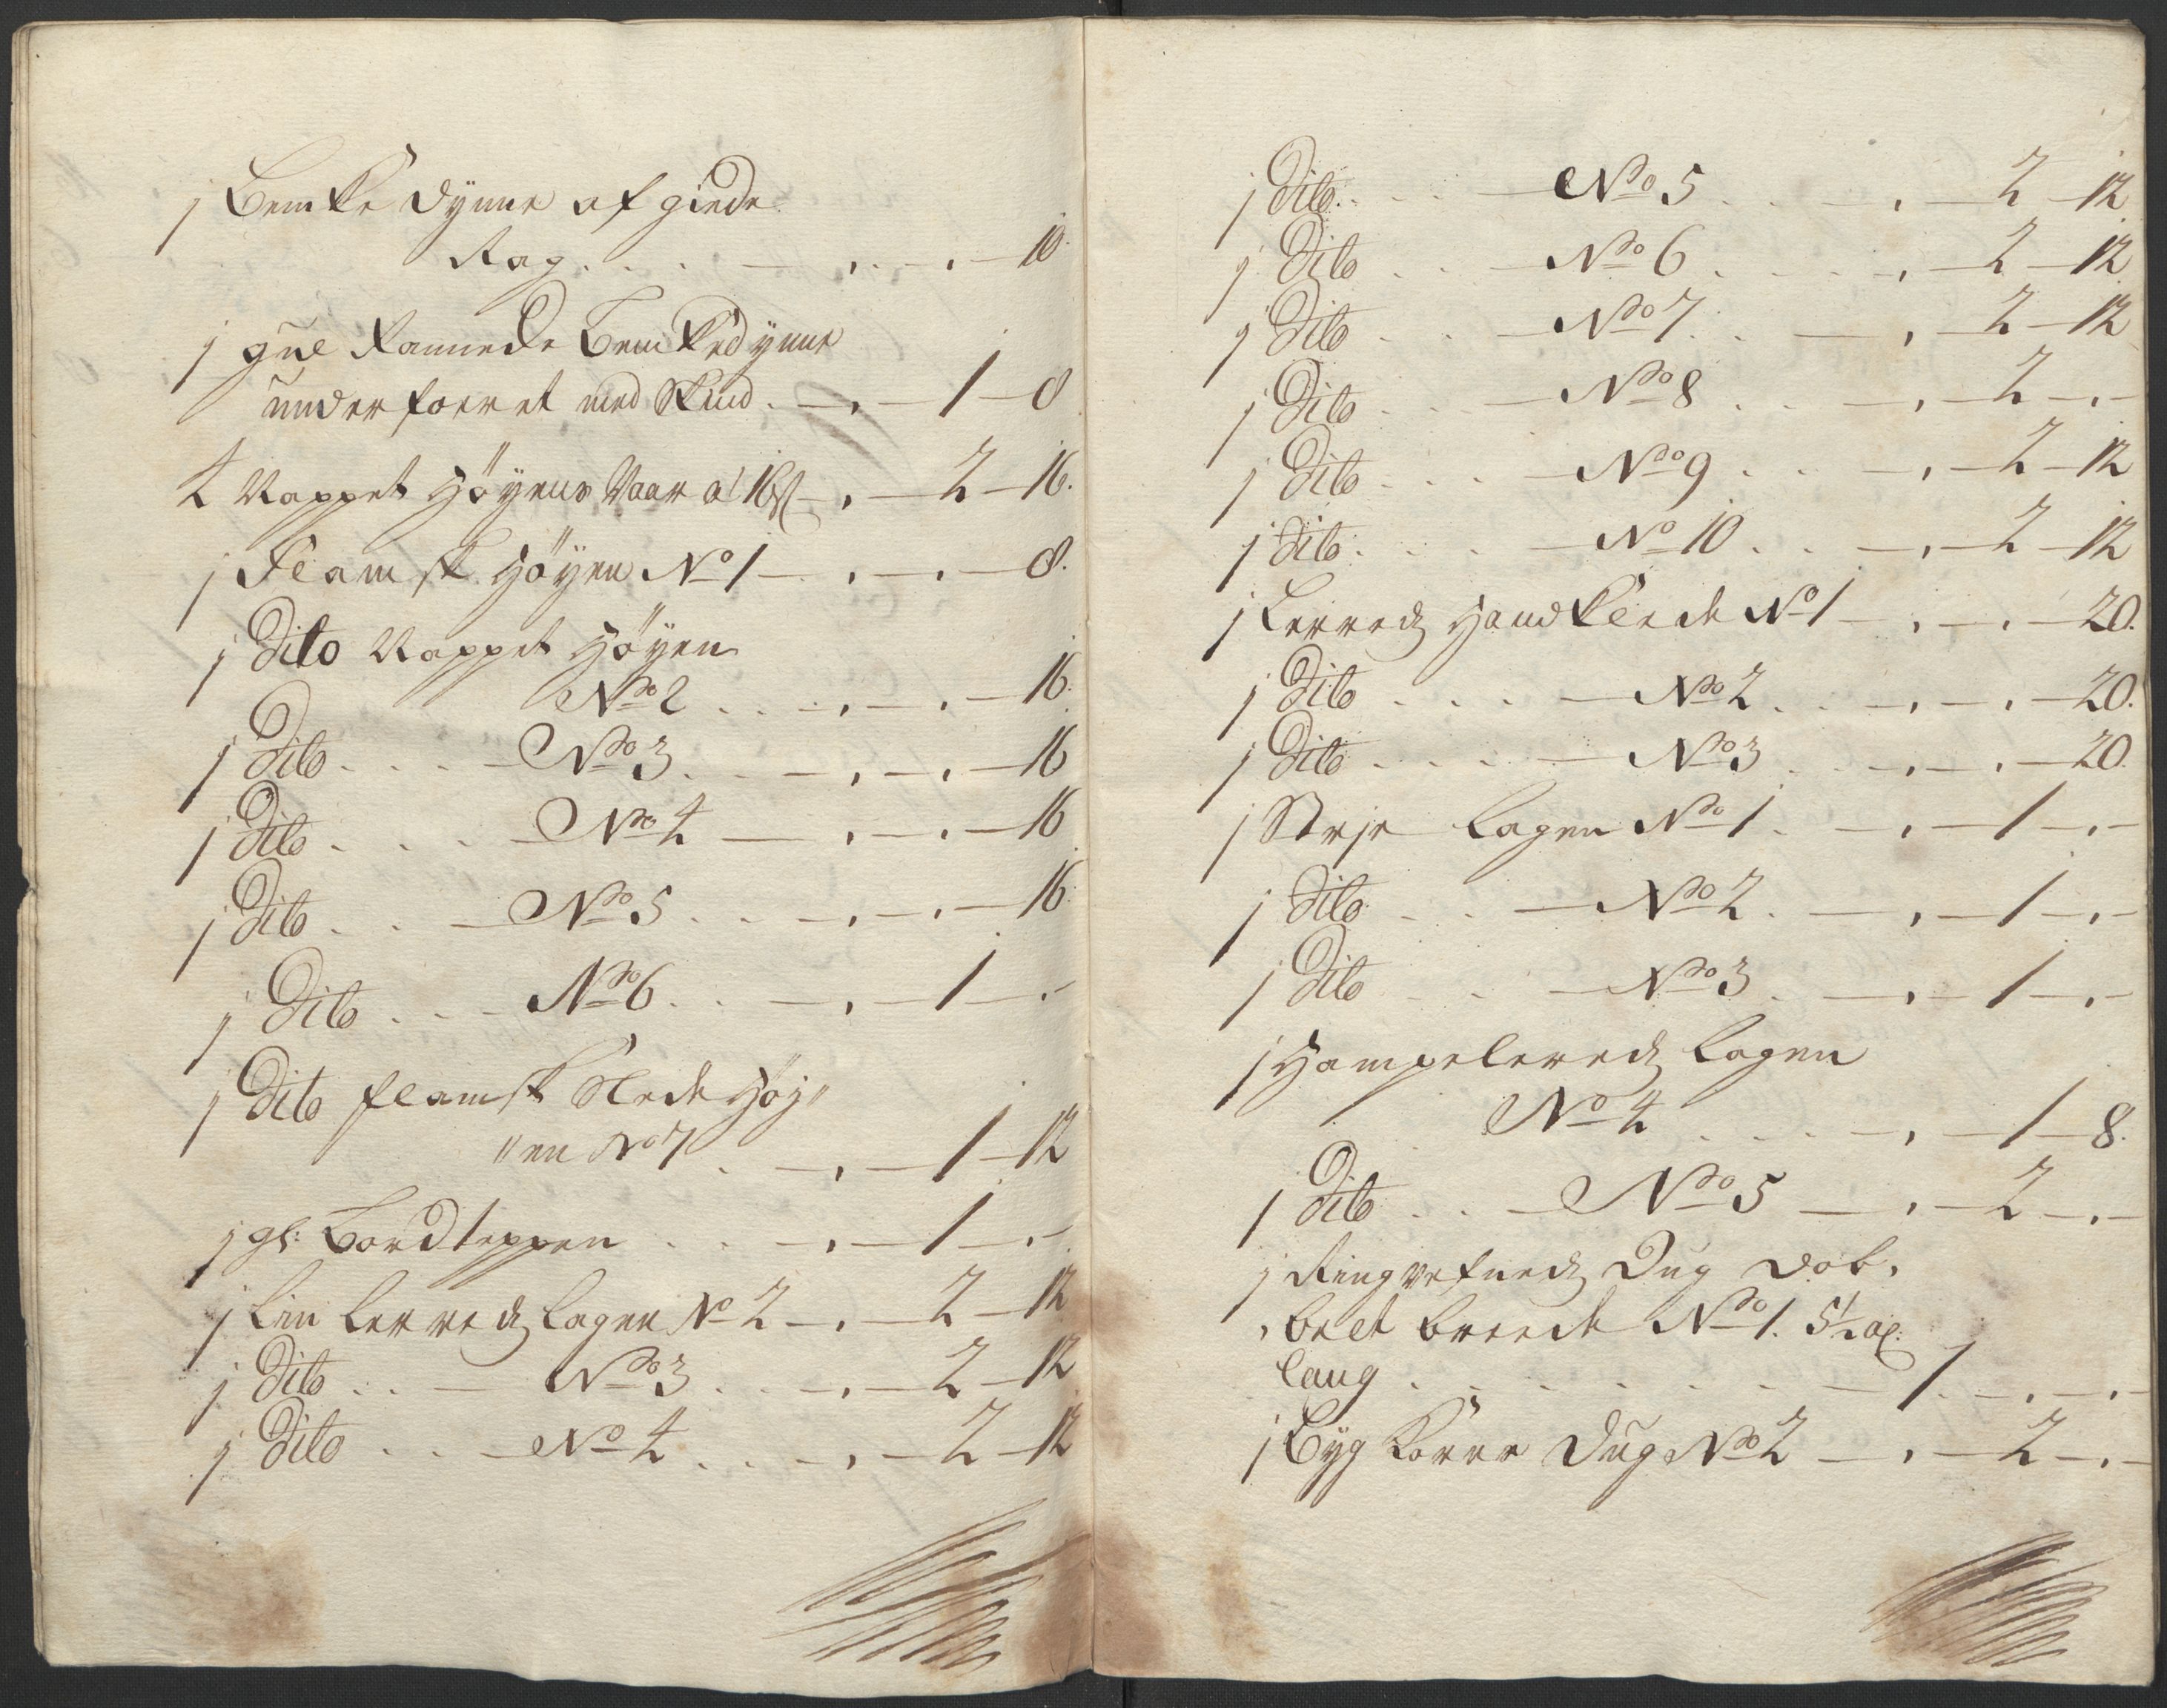 1 Bencke dynne af giede
Rag . . . . — , . — , — 10.
1 gul Rannede Benckedynne
underforret med Skind . — , — 1 — 8
4 Nappet Høyens Vaar a 16 s — , — 2 — 16.
1 Flamsk Høyen No 1 — . , — , — 8.
1 Dito Nappet Høyen
No 2 . . . — , — , — 16.
1 Dito . . . . — No 3 . . . — , — , — 16
1 Dito . . . . — No 4 — , — , — 16
1 Dito . . . — No 5 . . . — , — , — 16.
1 Dito . . . — No 6 . . . — , — 1 — , —
1 Dito flamsk Slede Høy„
„en No 7 . — , — 1 — 12
1 gl: Bordteppen . . . — , — 1 — , —
1 Lin Lerreds Lagen No 2 — , — 2 — 12
1 Dito . . . — No 3 . . . — , — 2 — 12
1 Dito . . . — No 4 . . . — , — 2 — 12
1 Dito . . . — No 5 . . — , — 2 — 12
1 Dito . . — No 6 . . . — , — 2 — 12
1 Dito . . — No 7 . . — , — 2 — 12
1 Dito . . . — No 8 . . — , — 2 — , —
1 Dito . . . — No 9 . . . — , — 2 — 12
1 Dito . . . . — No 10 . . — , — 2 — 12
1 Lerreds Handklæde No 1 — , — , — 20.
1 Dito . . . . — No 2 . . — , — , — 20.
1 Dito . . . . — No 3 . . . — , — , — 20.
1 Strje Lagen No 1 . — , — 1 — , —
1 Dito . . — No 2 . — , — 1 — , —
1 Dito . . — No 3 . — , — 1 — , —
1 Hampelereds Lagen
No 4 . . . . — , — 1 — 8.
1 Dito . . — No 5 — , — 2 — , —
1 Ringvefneds Dug dob,
,belt breede No 1. 5 1/2 al:
lang . . . . . . . — 1 . — , — , —
1 Byg Korns Dug No 2 — , — 2 — , —